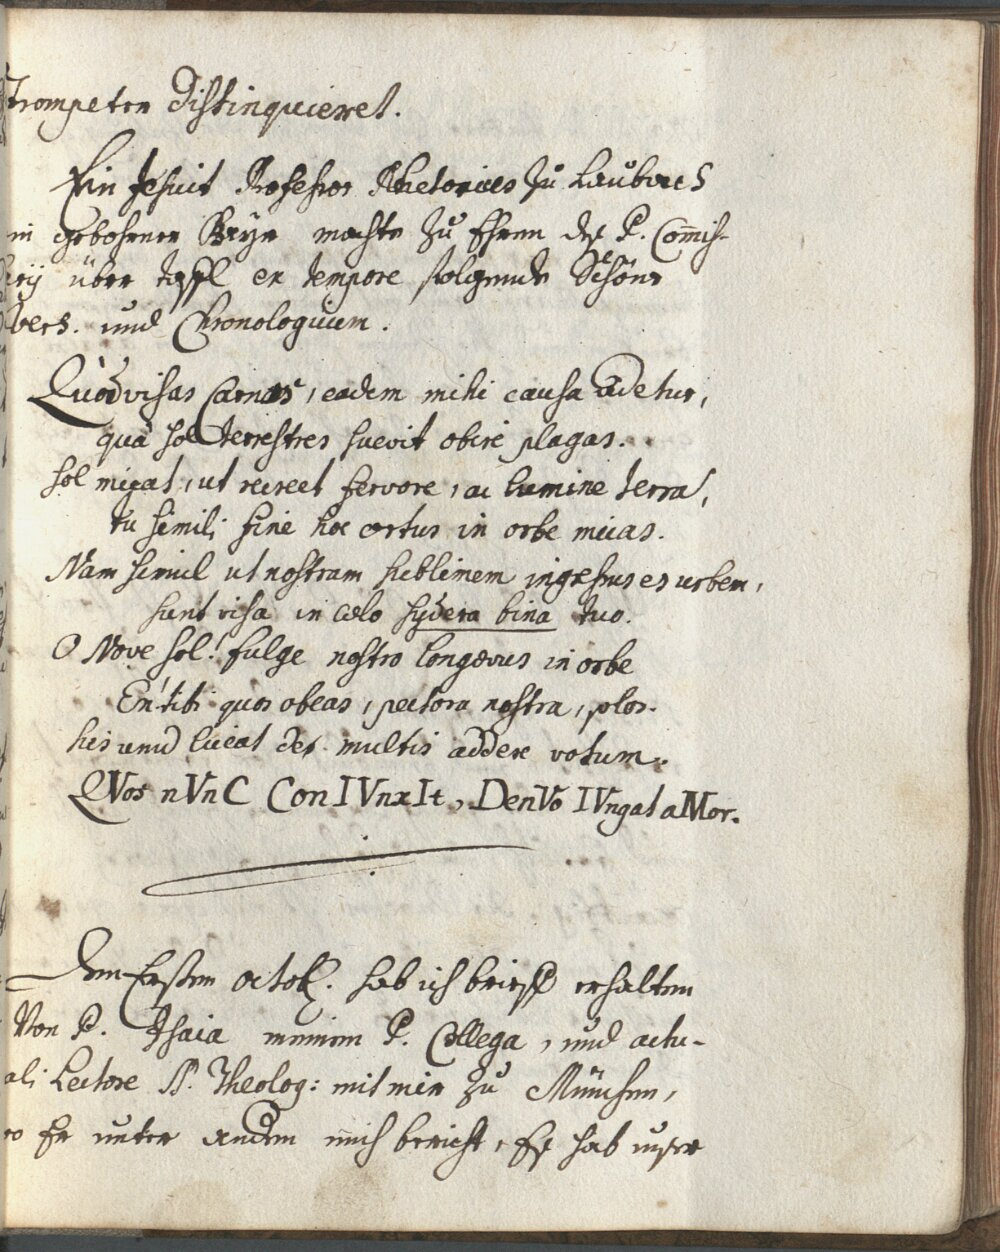 Trompeten distinquieret.
Ein Jesuit Professor Rhetorices zu Laubach
in gebohrner Bayr machte zu Ehren deß P. Com̄iss-
arij über taffl ex tempore folgende Schöne
vers. und Chronologicum.
Quòd visas Carnos, eadem mihi causa videtur,
quâ sol terrestres suevit obire plagas.
sol migat, ut recreet fervore, ac lumine terras,
tu simili fine hoc ortus in orbe micas.
Nam simul ut nostram sublimem ingressus es urbem,
sunt visa in cœlo sydera bina tuo.
O Nove sol! fulge nostro longævus in orbe
En tibi quos obeas, pectora nostra, polos.
his unum liceat der multis addere votum.
QVos nVnC ConIVnxIt, DenVo IVngat aMor.
Den Ersten octob. hab ich brieff erhalten
Von P. Isaia meinem P. Collega, und actu-
ali Lectore S. Theolog: mit mir zu München,
wo Er unter andern mich bericht, Eß hab unser